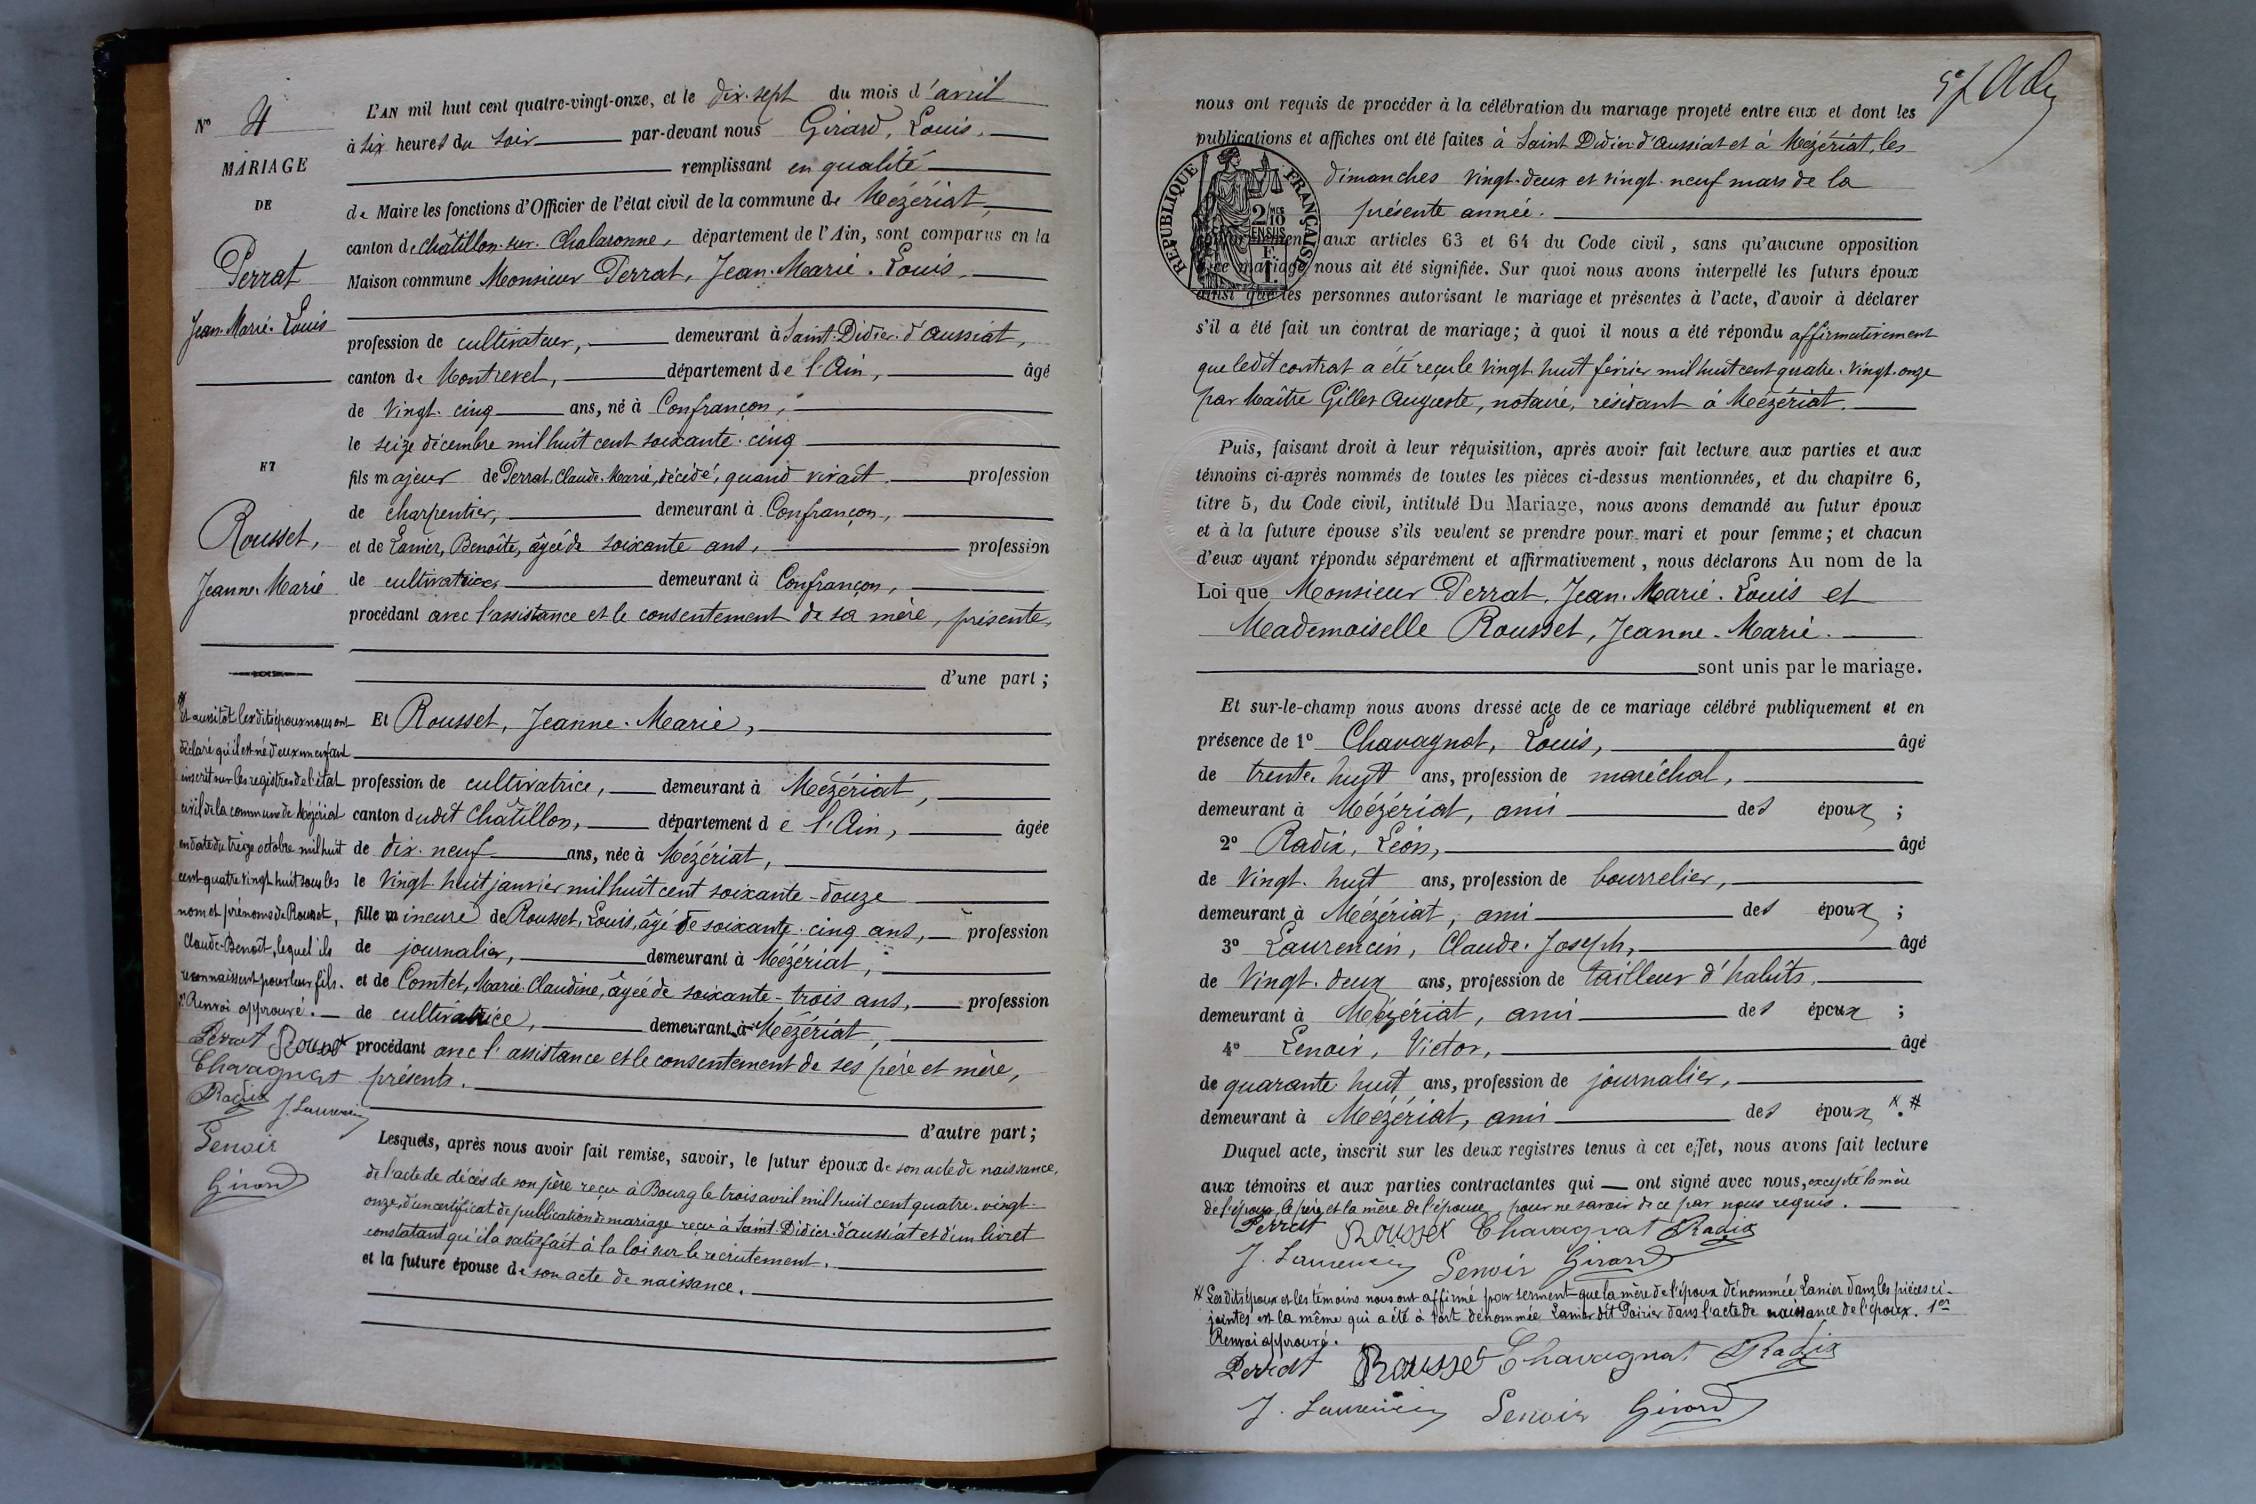 N° 4
MARIAGE
DE
Perrat
Jean-Marie-Louis
ET
Rousset,
Jeanne-Marie
L'AN mil huit cent quatre-vingt-onze, et le dix-sept du mois d'avril
à six heures du soir par-devant nous Girard, Louis,
remplissant en qualité
de Maire les fonctions d'Officier de l'état civil de la commune de Mézériat,
canton de Châtillon-sur-Chalaronne, département de l'Ain, sont comparus en la
Maison commune Monsieur Perrat, Jean-Marie-Louis,
profession de cultivateur, demeurant à Saint-Didier-d'Aussiat,
canton de Montrevel, département de l'Ain, âgé
de vingt-cinq ans, né à Confrançon,
le seize décembre mil huit cent soixante-cinq
fils majeur de Perrat, Claude-Marie, décédé, quand vivait profession
de charpentier, demeurant à Confrançon,
et de Lanier, Benoîte, âgée de soixante ans, profession
de cultivatrice, demeurant à Confrançon,
procédant avec l'assistance et le consentement de sa mère, présente,
d'une part;
Et Rousset, Jeanne-Marie,
profession de cultivatrice, demeurant à Mézériat,
canton dudit Châtillon, département de l'Ain, âgée
de dix-neuf ans, née à Mézériat,
le vingt-huit janvier mil huit cent soixante-douze
fille mineure de Rousset, Louis, âgé de soixante-cinq ans, profession
de journalier, demeurant à Mézériat,
et de Comtet, Marie-Claudine, âgée de soixante-trois ans, profession
de cultivatrice, demeurant à Mézériat,
procédant avec l'assistance et le consentement de ses père et mère,
présents.
d'autre part;
Lesquels, après nous avoir fait remise, savoir, le futur époux de son acte de naissance,
de l'acte de décès de son père reçu à Bourg le trois avril mil huit cent quatre-vingt-
onze, d'un certificat de publication de mariage reçu à Saint-Didier-d'aussiat et d'un livret
constatant qu'il a satisfait à la loi sur le recrutement.
et la future épouse de son acte de naissance.
# Et aussitôt lesdits époux nous ont
déclaré qu'il est né d'eux un enfant
inscrit sur les registres de l'état
civil de la commune de Mézériat
en date du treize octobre mil huit
cent quatre vingt huit sous les
nom et prénoms de Rousset,
Claude-Benoît, lequel ils
reconnaissent pour leur fils.
2e Renvoi approuvé.
Perrat Rousset
Chavagnat
Radix J. Laurencin
Lenoir
Girard
nous ont requis de procéder à la célébration du mariage projeté entre eux et dont les
publications et affiches ont été faites à Saint Didier d'Aussiat et à Mézériat, les
dimanches vingt-deux et vingt-neuf mars de la
présente année.
RÉPUBLIQUE FRANÇAISE
2/10 EN SUS
aux articles 63 et 64 du Code civil, sans qu'aucune opposition
à ce mariage nous ait été signifiée. Sur quoi nous avons interpellé les futurs époux
ainsi que les personnes autorisant le mariage et présentes à l'acte, d'avoir à déclarer
s'il a été fait un contrat de mariage; à quoi il nous a été répondu affirmativement
que ledit contrat a été reçu le vingt-huit février mil huit cent quatre-vingt-onze
par Maître Gilles Auguste, notaire, résidant à Mézériat.
Puis, faisant droit à leur réquisition, après avoir fait lecture aux parties et aux
témoins ci-après nommés de toutes les pièces ci-dessus mentionnées, et du chapitre 6,
titre 5, du Code civil, intitulé Du Mariage, nous avons demandé au futur époux
et à la future épouse s'ils veulent se prendre pour mari et pour femme; et chacun
d'eux ayant répondu séparément et affirmativement, nous déclarons Au nom de la
Loi que Monsieur Perrat, Jean-Marie-Louis et
Mademoiselle Rousset, Jeanne-Marie.
sont unis par le mariage.
Et sur-le-champ nous avons dressé acte de ce mariage célébré publiquement et en
présence de 1° Chavagnat, Louis, âgé
de trente-huit ans, profession de maréchal,
demeurant à Mézériat, ami des époux;
2° Radix, Léon, âgé
de vingt-huit ans, profession de bourrelier,
demeurant à Mézériat, ami des époux;
3° Laurencin, Claude-Joseph, âgé
de vingt-deux ans, profession de tailleur d'habits,
demeurant à Mézériat, ami des époux;
4° Lenoir, Victor, âgé
de quarante-huit ans, profession de journalier,
demeurant à Mézériat, ami des époux. # #
Duquel acte, inscrit sur les deux registres tenus à cet effet, nous avons fait lecture
aux témoins et aux parties contractantes qui ont signé avec nous, excepté la mère
de l'époux, le père et la mère de l'épouse, pour ne savoir de ce par nous requis.
Perrat Rousset Chavagnat Radix
J. Laurencin Lenoir Girard
# Lesdits époux et les témoins nous ont affirmé par serment que la mère de l'époux dénommée Lanier dans les pièces ci-
jointes est la même qui a été à tort dénommée Lanier dit Poirier dans l'acte de naissance de l'époux. 1er
Renvoi approuvé.
Perrat Rousset Chavagnat Radix
J. Laurencin Lenoir Girard